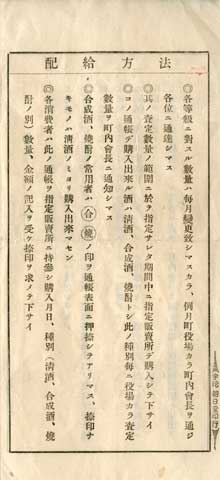 配給方法
◎各等級ニ対スル數量ハ毎月變更致シマスカラ、例月町役場カラ町內會長ヲ通ジ
各位ニ通達シマス
◎其ノ査定數量ノ範圍ニ於テ指定サレタ期間中ニ指定販賣所デ購入シテ下サイ
◎コノ通帳デ購入出來ル酒ハ清酒、合成酒、燒酎トシ此ノ種別每ニ役場カラ査定
數量ヲ町內會長ニ通知シマス
◎合成酒、燒酎ノ常用者ハ(合)(燒)ノ印ヲ通帳表面ニ押捺シテアリマス、捺印ナ
キモノハ清酒ノミヨリ購入出來マセン
◎各消費者ハ此ノ通帳ヲ指定販賣所ニ持參シ購入月日、種別(清酒、合成酒、燒
酎ノ別)數量、金額ノ記入ヲ受ケ捺印ヲ求メテ下サイ